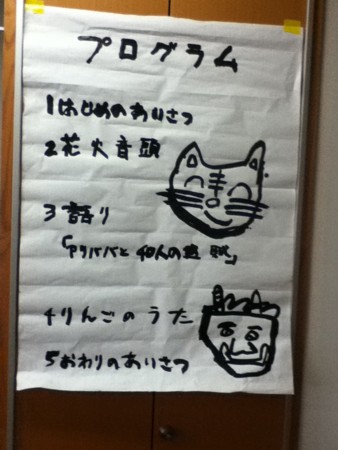 プログラム
1はじめのあいさつ
2花火音頭
3語り
「アリババと40人の盗賊」
4りんごのうた
5おわりのあいさつ